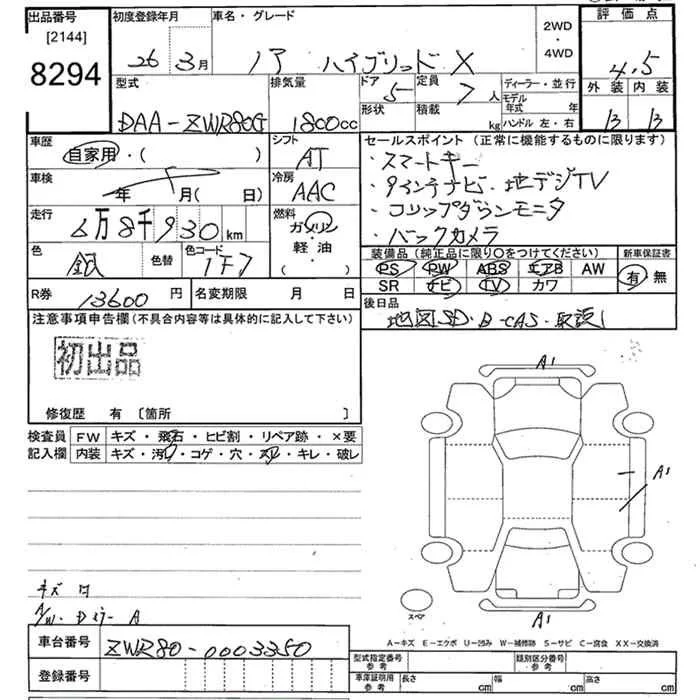 出品番号
[2144]
8294
初度登録年月
26 3月
車名・グレード
ノア ハイブリッド X
2WD
・
4WD
評価点
4.5
外装 内装
B B
型式
DAA-ZWR80G
排気量
1800cc
ドア
5
形状
定員
7人
積載
kg
ディーラー・並行
モデル
年式 年
ハンドル 左・右
車歴
自家用・( )
シフト
AT
車検
年 月( 日)
冷房
AAC
走行
6万8千930km
燃料
ガソリン
軽・油
( )
色
銀
色替
色コード
1F7
R券
13600円
名変期限 月 日
セールスポイント (正常に機能するものに限ります)
・スマートキー
・9インチナビ・地デジTV
・コリップダウンモニタ
・バックカメラ
装備品 (純正品に限り○をつけてください)
PS PW ABS エアB AW
SR ナビ TV カワ
新車保証書
有 無
後日品
地図SD・B-CAS・取説
注意事項申告欄(不具合内容等は具体的に記入して下さい)
初出品
修復歴 有 〔箇所 〕
検査員
記入欄
FW キズ・飛石・ヒビ割・リペア跡・×要
内装 キズ・汚れ・コゲ・穴・スレ・キレ・破レ
A1
A1
A1
スペア
A-キズ E-エクボ U-凹み W-補修跡 S-サビ C-腐食 XX-交換済
車台番号
ZWR80-0003350
登録番号
型式指定番号
参考
類別区分番号
参考
車庫証明用
参考
長さ cm
幅 cm
高さ cm